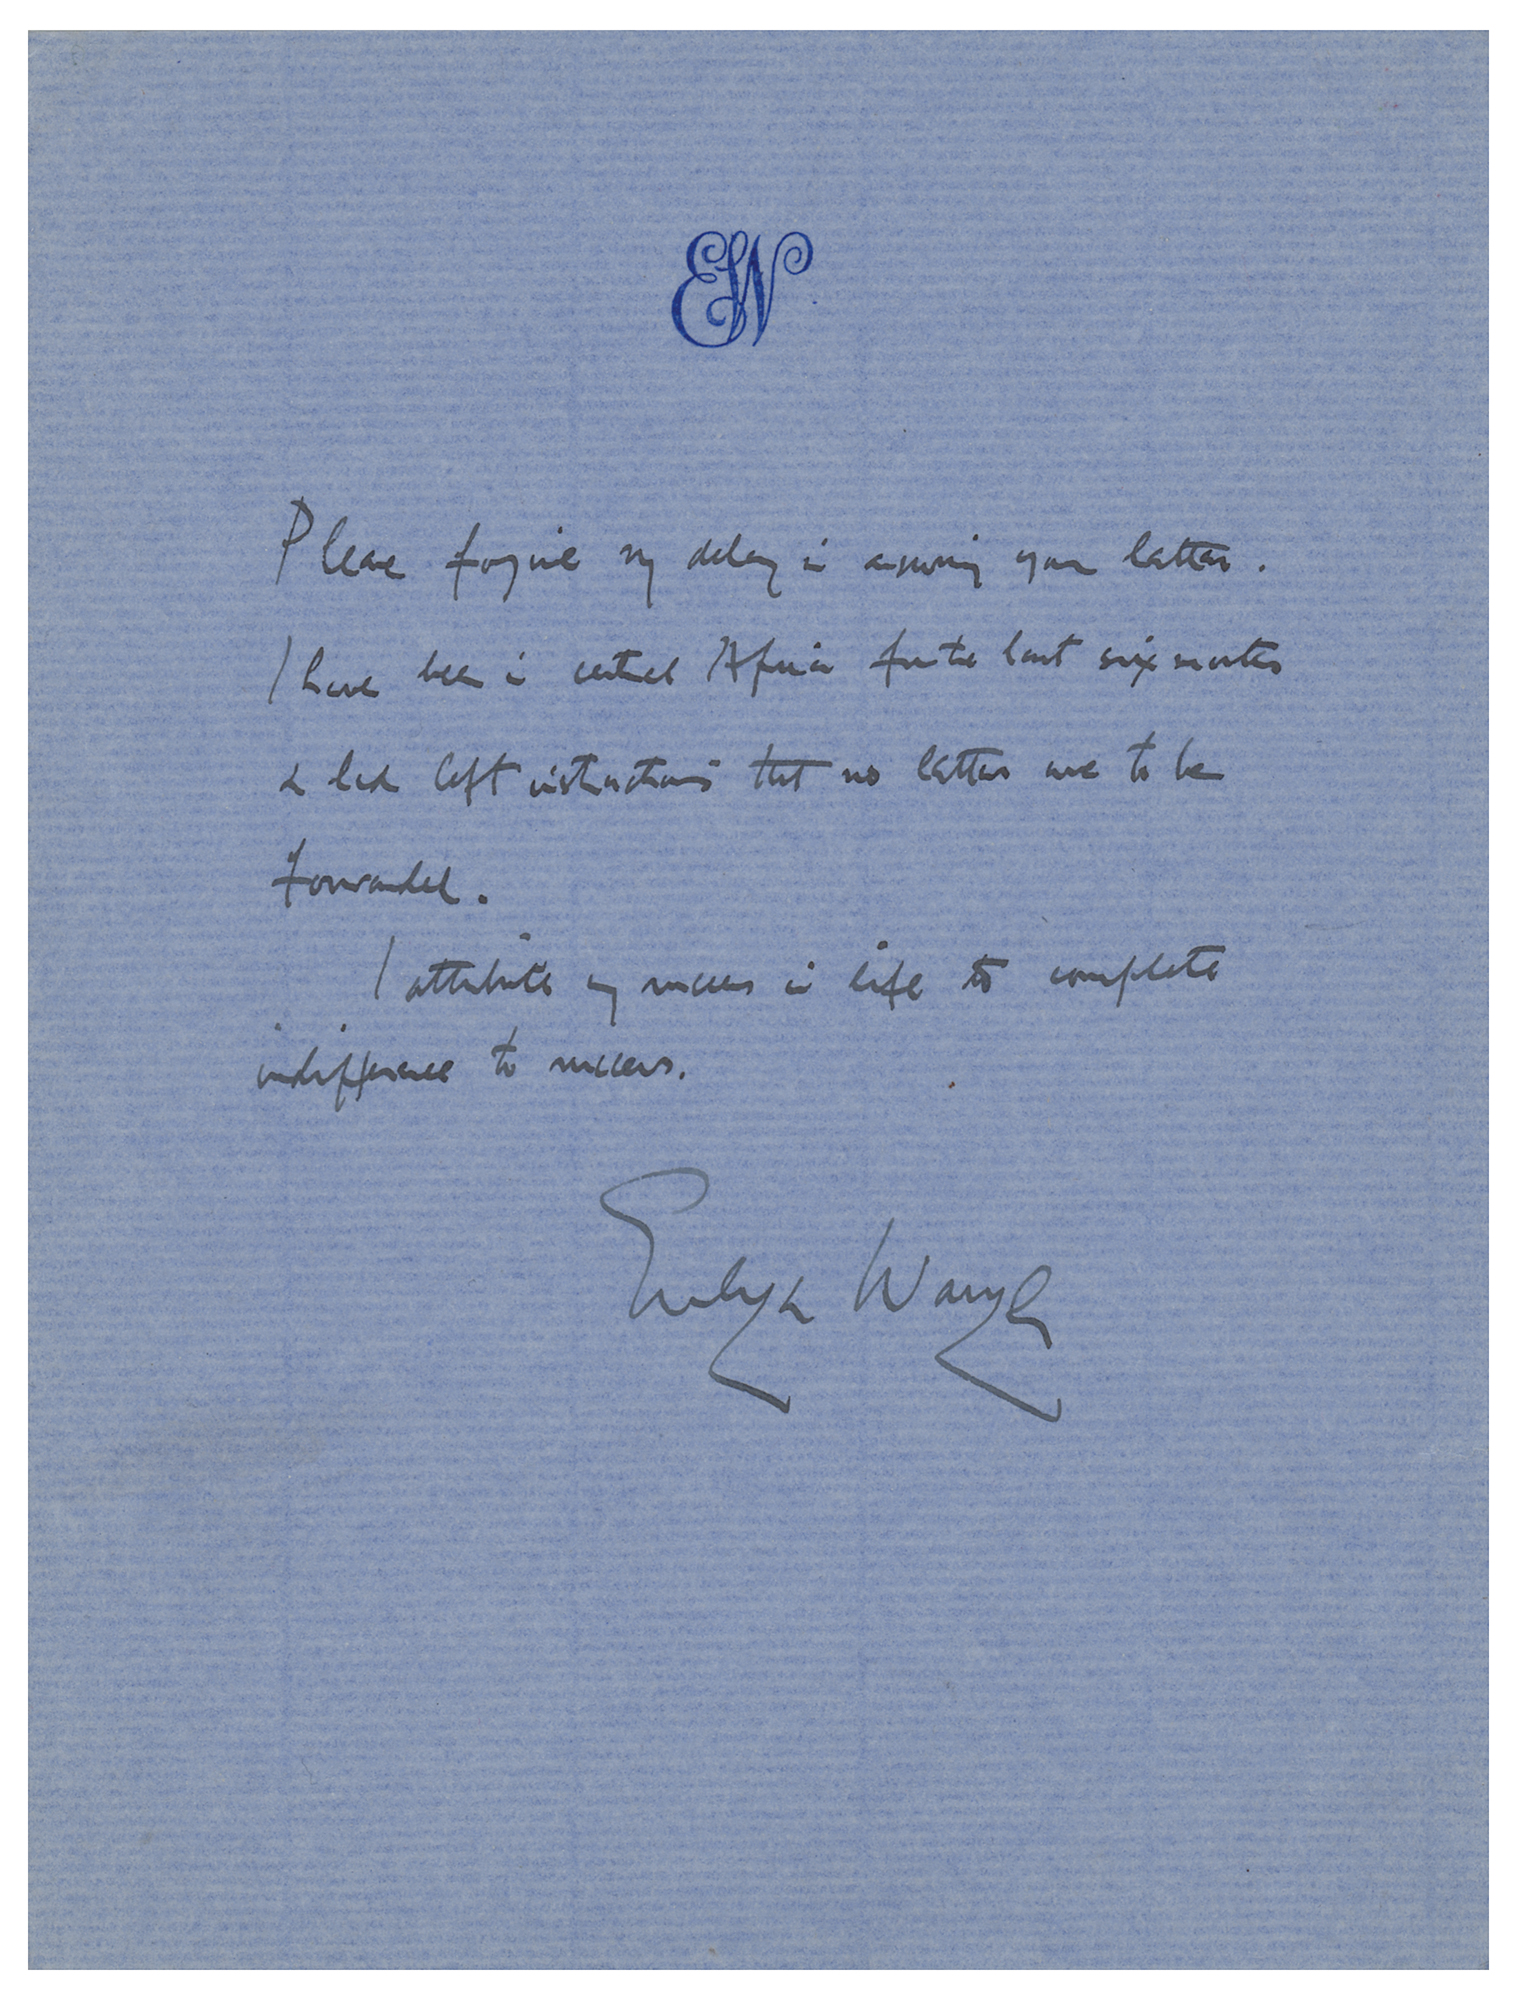 EW
Please forgive my delay in answering your letter.
I have been in central Africa for the last six months
& had left instructions that no letters were to be
forwarded.
I attribute my success in life to complete
indifference to success.
Evelyn Waugh